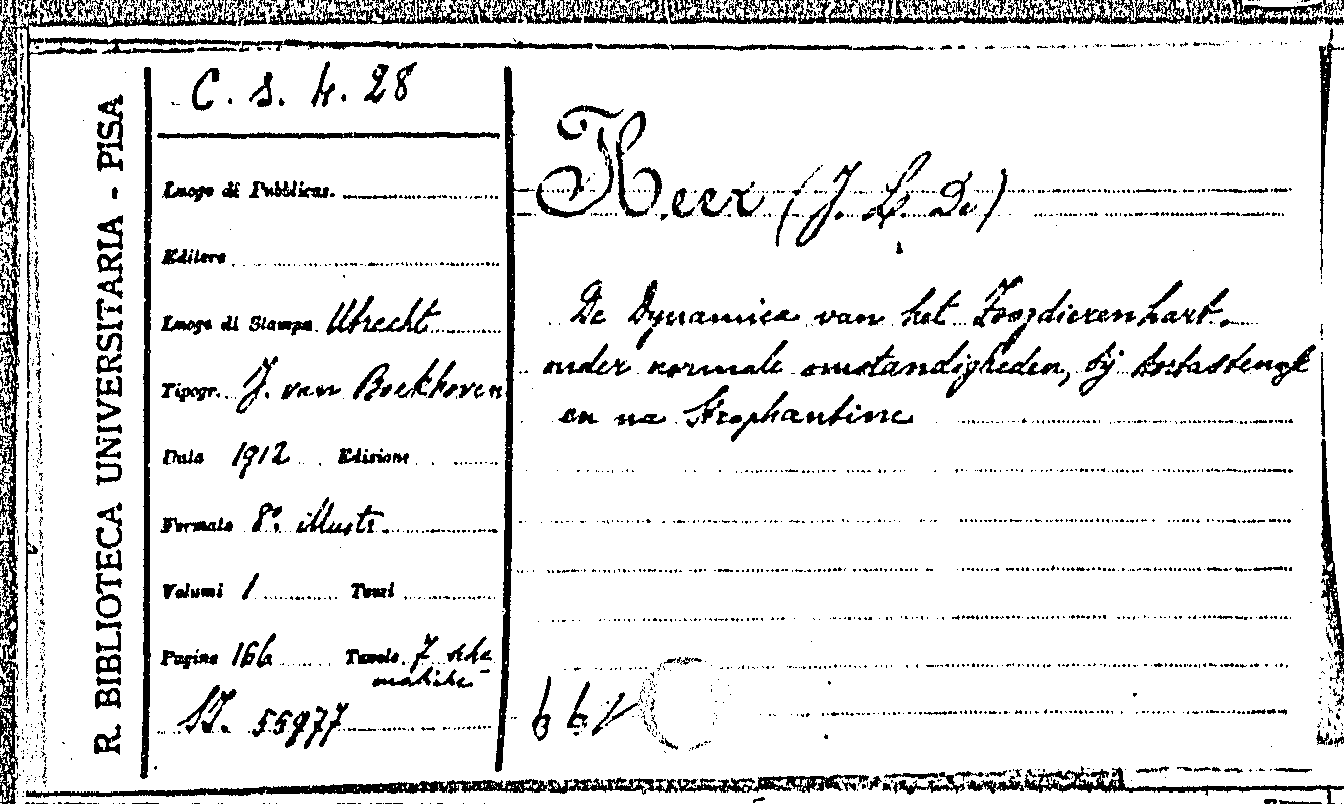 R. BIBLIOTECA UNIVERSITARIA - PISA
C. s. 4. 28
Luogo di Pubblicaz.
Editore
Luogo di Stampa Utrecht
Tipogr. J. van Boekhoven
Data 1912 Edizione
Formato 8º. illustr.
Volumi 1 Tomi
Pagine 166 Tavole 7 sche
matiche
55977
Heer (J. L. De)
De Dynamica van het Zoogdierenhart.
onder normale omstandigheden, bij
en na Strophantine